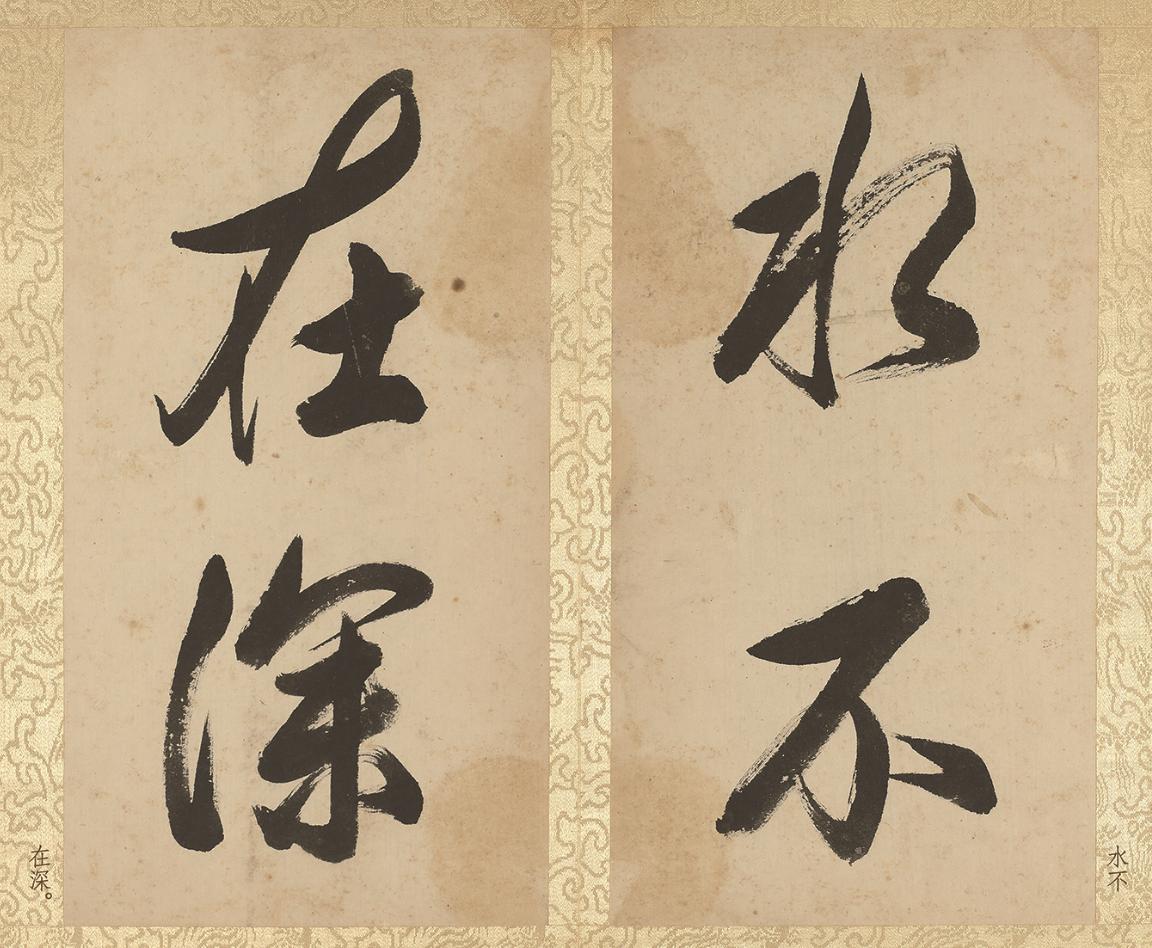 水不
在深
水不
在深。